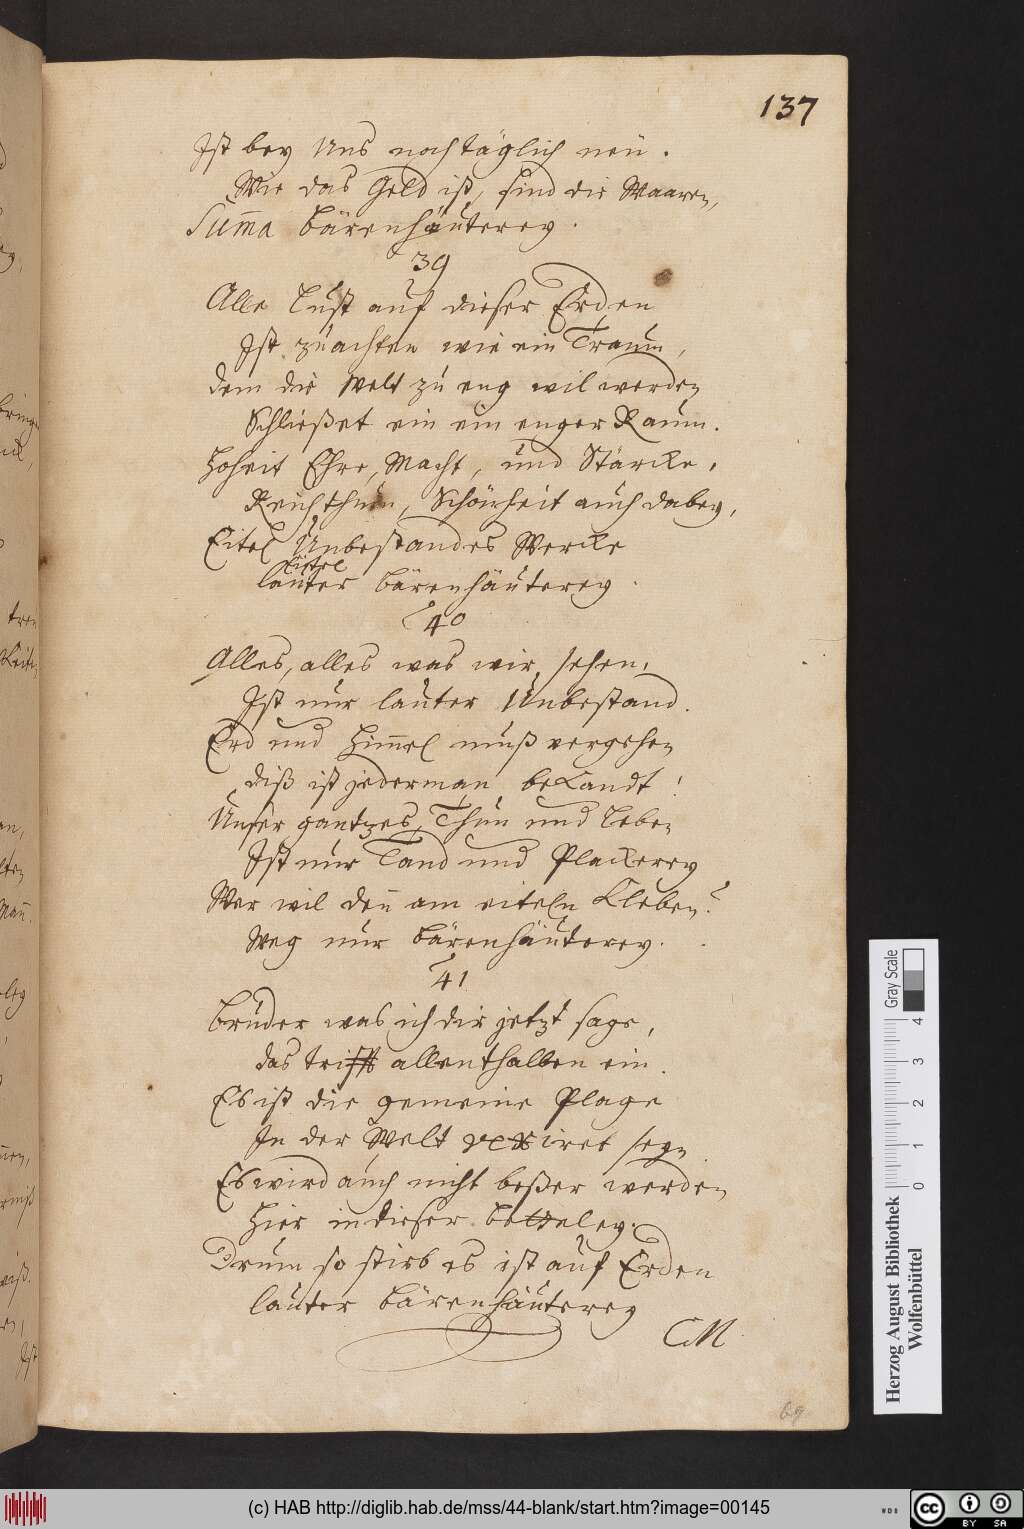 137
Ist bey Uns noch täglich neü.
Wie das Geld ist, sind die Waaren,
Sum̄a Bärenhäuterey.
39
Alle Lust auf dieser Erden
Ist zuachten wie ein Traum,
dem die Welt zu eng wil werden
Schließet ein ein enger Raum.
Hoheit Ehre, Macht, und Stärcke,
Reichthum, Schönheit auch dabey,
Eitel Unbestandes Wercke
Eitel
lauter Bärenhäuterey.
40
Alles, alles was wir sehen,
Ist nur lauter Unbestand.
Erd und Him̄el muß vergehen
diß ist jederman bekandt!
Unser gantzes Thun und Leben
Ist nur Tand und Plackerey
Wer wil den̄ am eiteln kleben?
Weg nur Bärenhäuterey.
41
Bruder was ich dir jetzt sage,
das trifft allenthalben ein.
Es ist die gemeine Plage
In der Welt vexiret seyn
Es wird auch nicht beßer werden
Hier in dieser Betteley.
Drum so stirb es ist auf Erden
lauter Bärenhäuterey
CM
69
bringen
tren
Leite
an,
Man̄.
Ist
Gray Scale
0 1 2 3 4
Herzog August Bibliothek
Wolfenbüttel
(c) HAB http://diglib.hab.de/mss/44-blank/start.htm?image=00145
WDB
CC BY SA